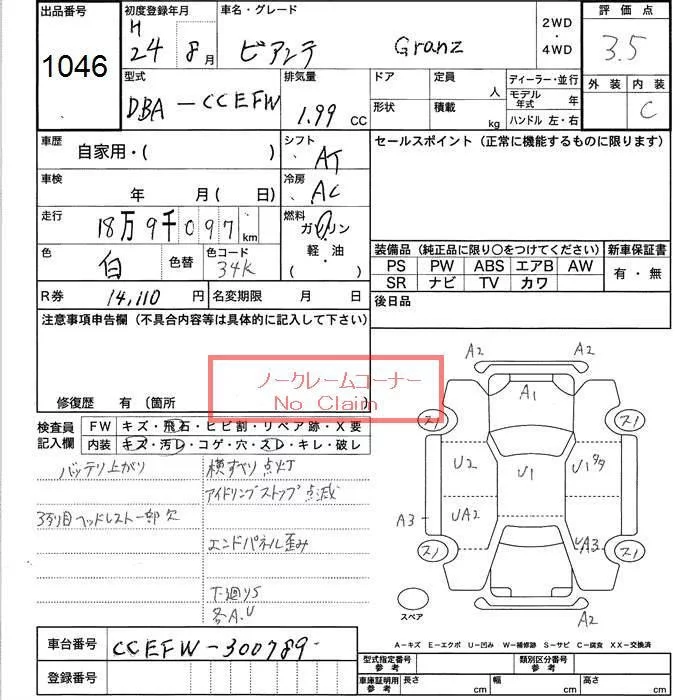 出品番号
1046
初度登録年月
H 24 8月
車名・グレード
ビアンテ Granz
2WD
・
4WD
評価点
3.5
外装 内装
C
型式
DBA-CCEFW
排気量
1.99 CC
ドア
定員 人
ディーラー・並行
モデル年式 年
形状
積載 kg
ハンドル 左・右
車歴
自家用・( )
シフト
AT
セールスポイント (正常に機能するものに限ります)
車検
年 月( 日)
冷房
AC
走行
18万9千097km
燃料
ガソリン
軽・油
( )
色
白
色替
色コード
34K
装備品 (純正品に限り○をつけてください)
新車保証書
PS PW ABS エアB AW
SR ナビ TV カワ
有・無
R券
14,110円
名変期限 月 日
後日品
注意事項申告欄 (不具合内容等は具体的に記入して下さい)
ノークレームコーナー
No Claim
修復歴 有 (箇所
検査員記入欄
FW キズ・飛石・ヒビ割・リペア跡・X要
内装 キズ・汚レ・コゲ・穴・スレ・キレ・破レ
バッテリ上がり
3列目ヘッドレスト一部欠
横すべり点灯
アイドリングストップ点滅
エンドパネル歪み
下廻りS
各A.U
A2 A2
A1
スノ スノ
U2 U1 U1
UA2
A3
UA3
スノ スノ
A2
スペア
A-キズ E-エクボ U-凹み W-補修跡 S-サビ C-腐食 XX-交換済
車台番号
CCEFW-300789-
登録番号
型式指定番号 参考
類別区分番号 参考
車庫証明用 参考
長さ cm
幅 cm
高さ cm